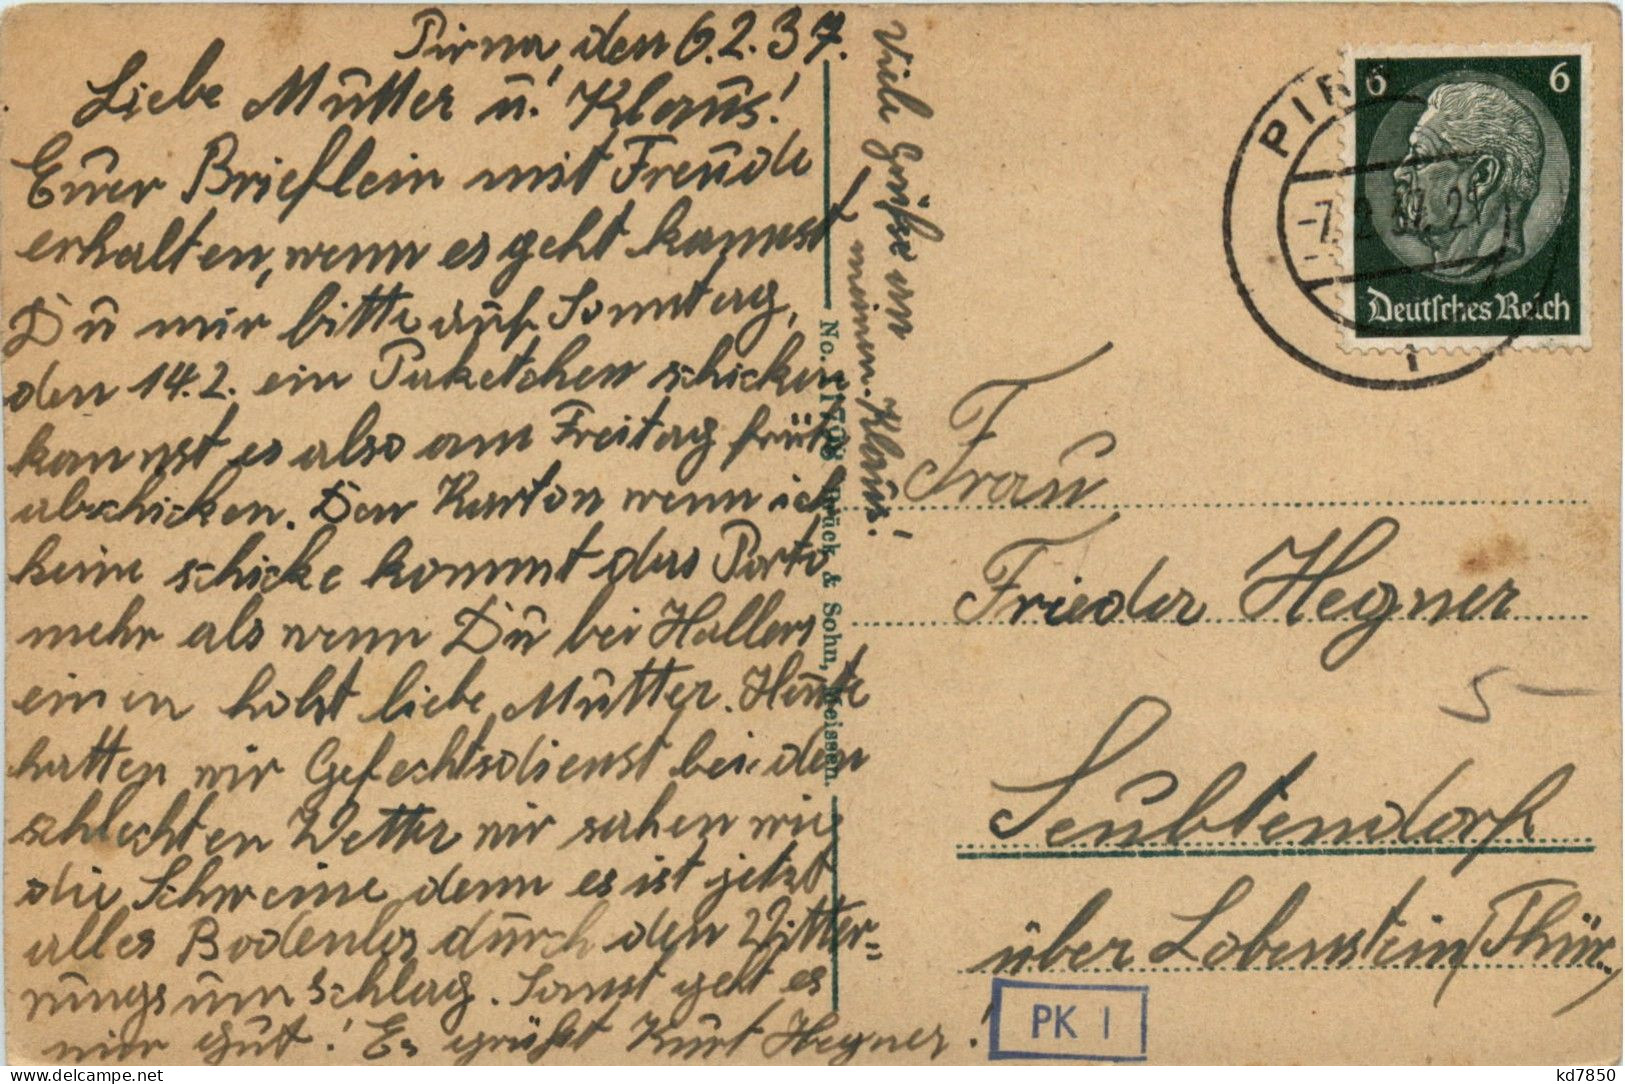 Pirna, den 6.2.37.
Liebe Mutter u.! Klaus!
Eurer Brieflein mit Freude
erhalten, wenn es geht kannst
Du mir bitte auf Sonntag,
den 14.2. ein Paketchen schicken
kannst es also am Freitag früh
abschicken. Den Karton wenn ich
keine schicke kommt das Porto
mehr als wenn Du bei Hallers
einen holst liebe Mutter. Heute
hatten wir Gefechtsdienst bei den
schlechten Wetter wir sahen wie
die Schweine denn es ist jetzt
alles Bodenlos durch den Witter=
rungsumschlag. Sonst geht es
mir gut! Es grüßt Kurt Hegner!
Viele Grüße an
meinen Klaus!
No. 17 Brück & Sohn, Meissen.
6 6
Deutsches Reich
PIR
-7.2.37. 21
1
Frau
Frieder Hegner
Seubtendorf
über Lobenstein (Thür.)
5 –
PK I
www.delcampe.net
kd7850